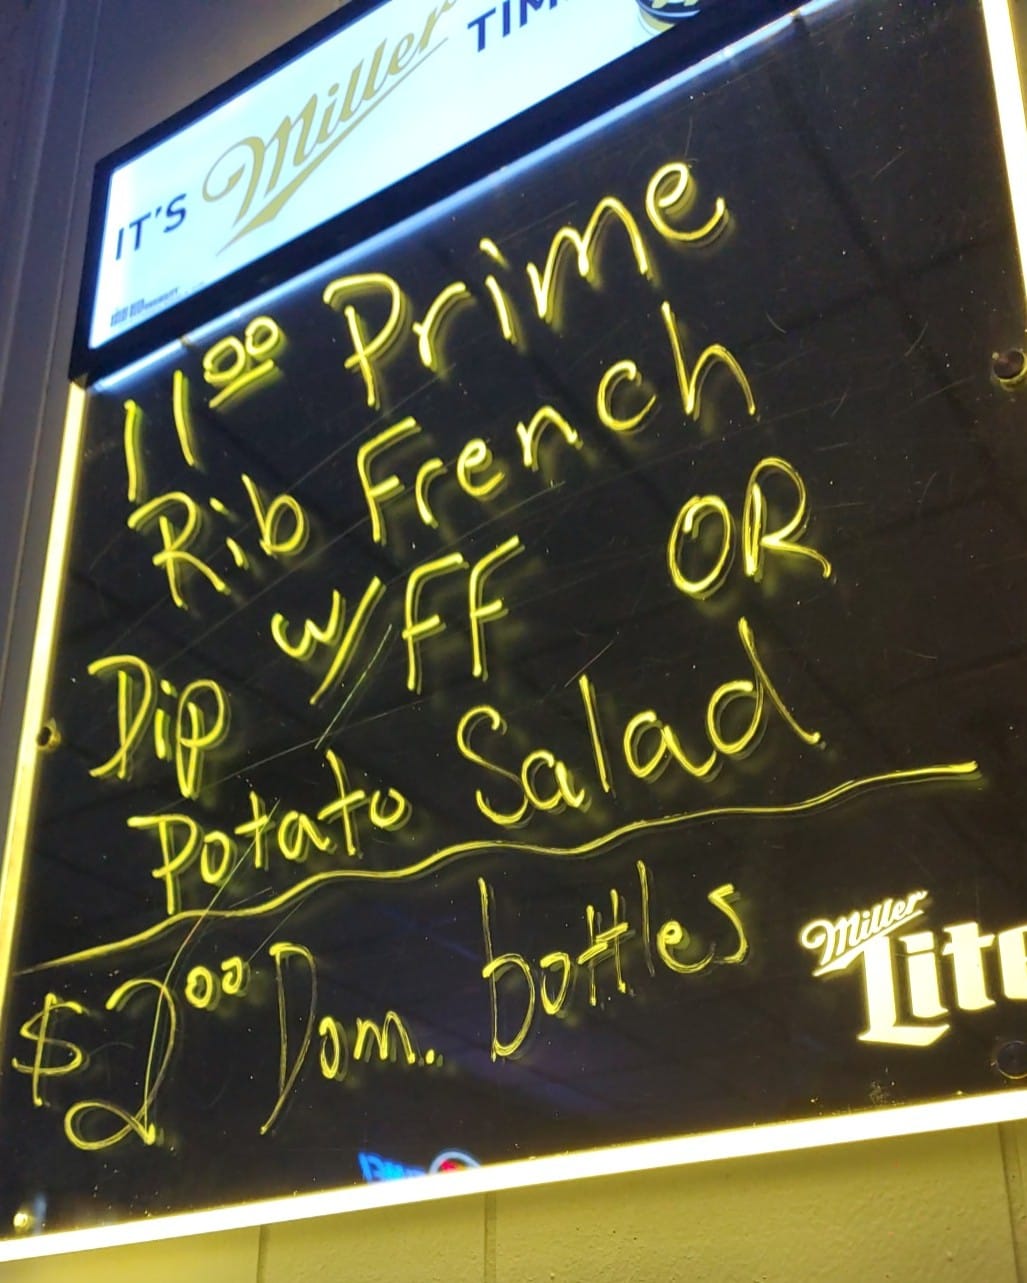 IT'S Miller TIM
11.00 Prime
Rib French
Dip w/FF OR
Potato Salad
$2.00 Dom. bottles
Miller
Lite